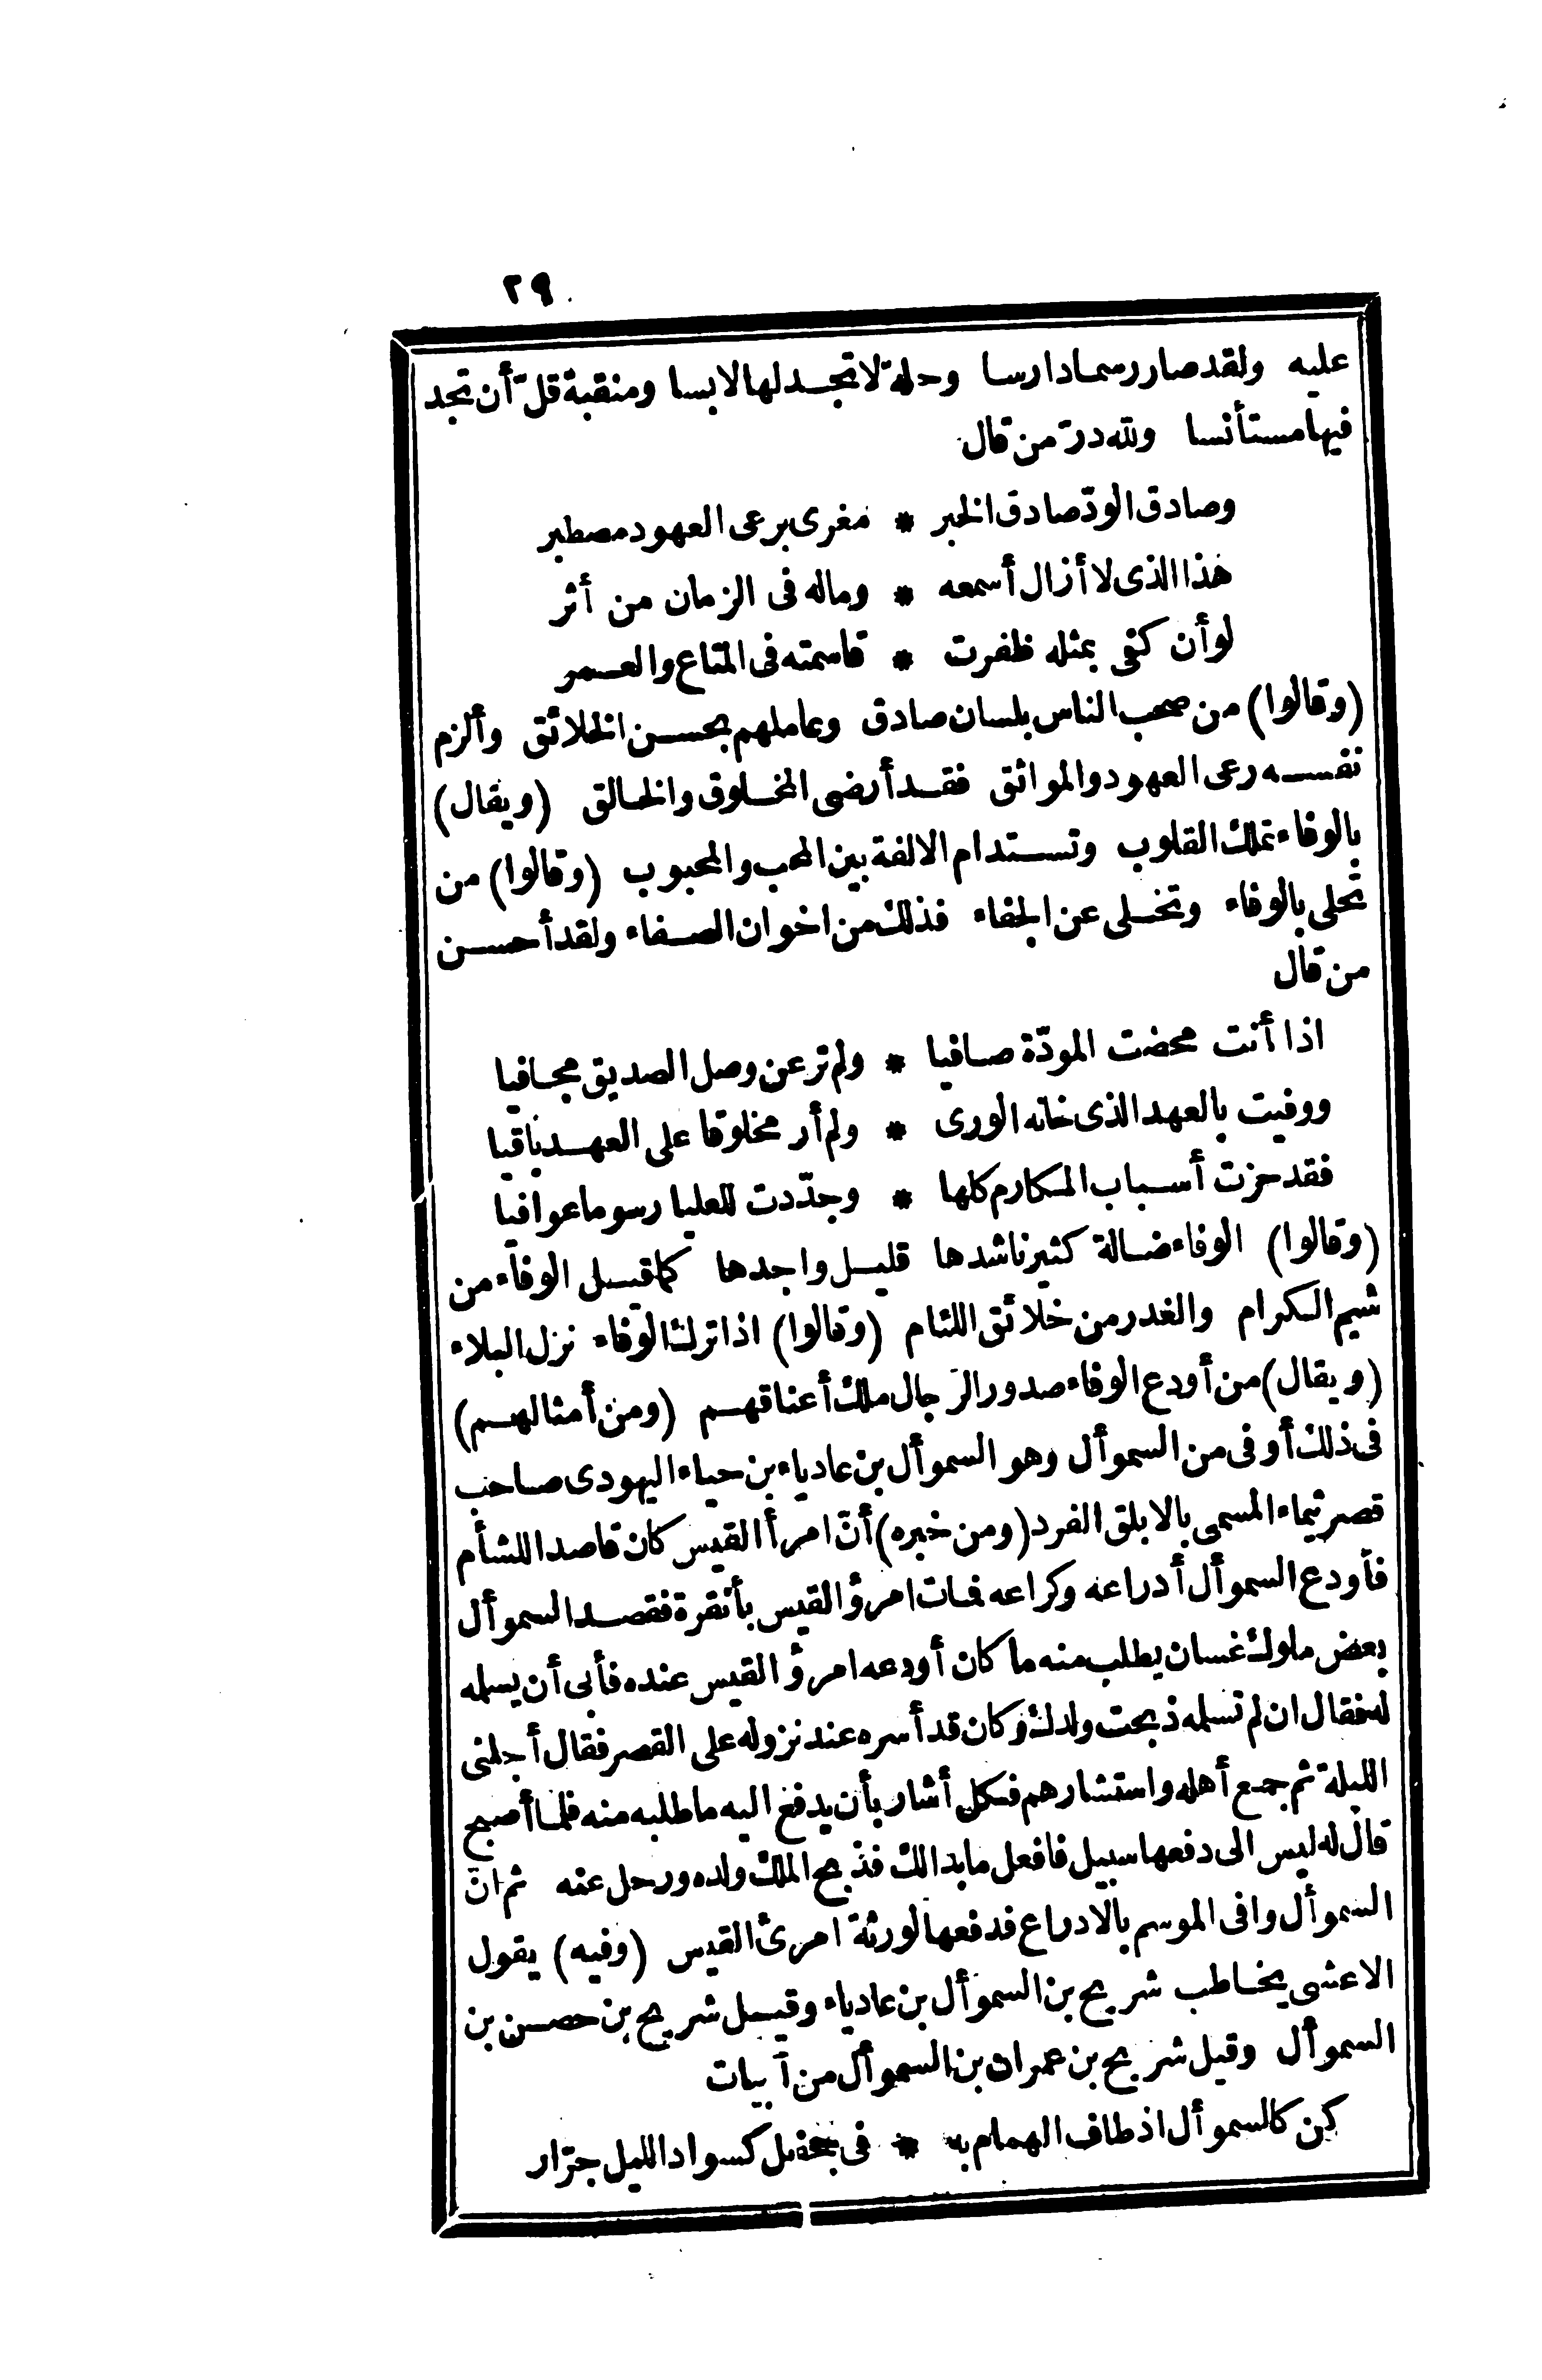 ٢٩
عليه ولقد صار رسما دارسا وحلة لا تجد لها لابسا ومنقبة قلّ أن تجد
فيها مستأنسا ولله درّ من قال
وصادق الودّ صادق الخبر * مغرى برعى العهود مصطبر
هذا الذى لا أزال أسمعه * وماله فى الزمان من أثر
لو أن كفى بمثله ظفرت * قاسمته فى المتاع والعمر
(وقالوا) من صحب الناس بلسان صادق وعاملهم بحسن الخلائق وألزم
نفسه رعى العهود والمواثق فقد أرضى المخلوق والخالق (ويقال)
بالوفاء تملك القلوب وتستدام الالفة بين المحب والمحبوب (وقالوا) من
تحلى بالوفاء وتخلى عن الجفاء فذلك من اخوان الصفاء ولقد أحسن
من قال
اذا أنت محضت المودّة صافيا * ولم تر عن وصل الصديق مجافيا
ووفيت بالعهد الذى خانه الورى * ولم أر مخلوقا على العهد باقيا
فقد حزت أسباب المكارم كلها * وجدّدت للعليا رسوما عوافيا
(وقالوا) الوفاء ضالة كثير ناشدها قليل واجدها كما قيل الوفاء من
شيم الكرام والغدر من خلائق اللئام (وقالوا) اذا ترك الوفاء نزل البلاء
(ويقال) من أودع الوفاء صدور الرجال ملك أعناقهم (ومن أمثالهم)
فى ذلك أوفى من السموأل وهو السموأل بن عادياء بن حياء اليهودى صاحب
قصر تيماء المسمى بالابلق الفرد (ومن خبره) أنّ امرأ القيس كان قاصدا للشأم
فأودع السموأل أدراعه وكراعه فمات امرؤ القيس بأنقرة فقصد السموأل
بعض ملوك غسان يطلب منه ما كان أودعه امرؤ القيس عنده فأبى أن يسلمه
له فقال ان لم تسلمه ذبحت ولدك وكان قد أسره عند نزوله على القصر فقال أجلنى
الليلة ثم جمع أهله واستشارهم فكل أشار بأن يدفع اليه ما طلبه منه فلما أصبح
قال له ليس الى دفعها سبيل فافعل ما بدا لك فذبح الملك ولده ورحل عنه ثم انّ
السموأل وافى الموسم بالادراع فدفعها لورثة امرئ القيس (وفيه) يقول
الاعشى يخاطب شريح بن السموأل بن عادياء وقيل شريح بن حصن بن
السموأل وقيل شريح بن عمران بن السموأل من أبيات
كن كالسموأل اذ طاف الهمام به * فى جحفل كسواد الليل جرّار